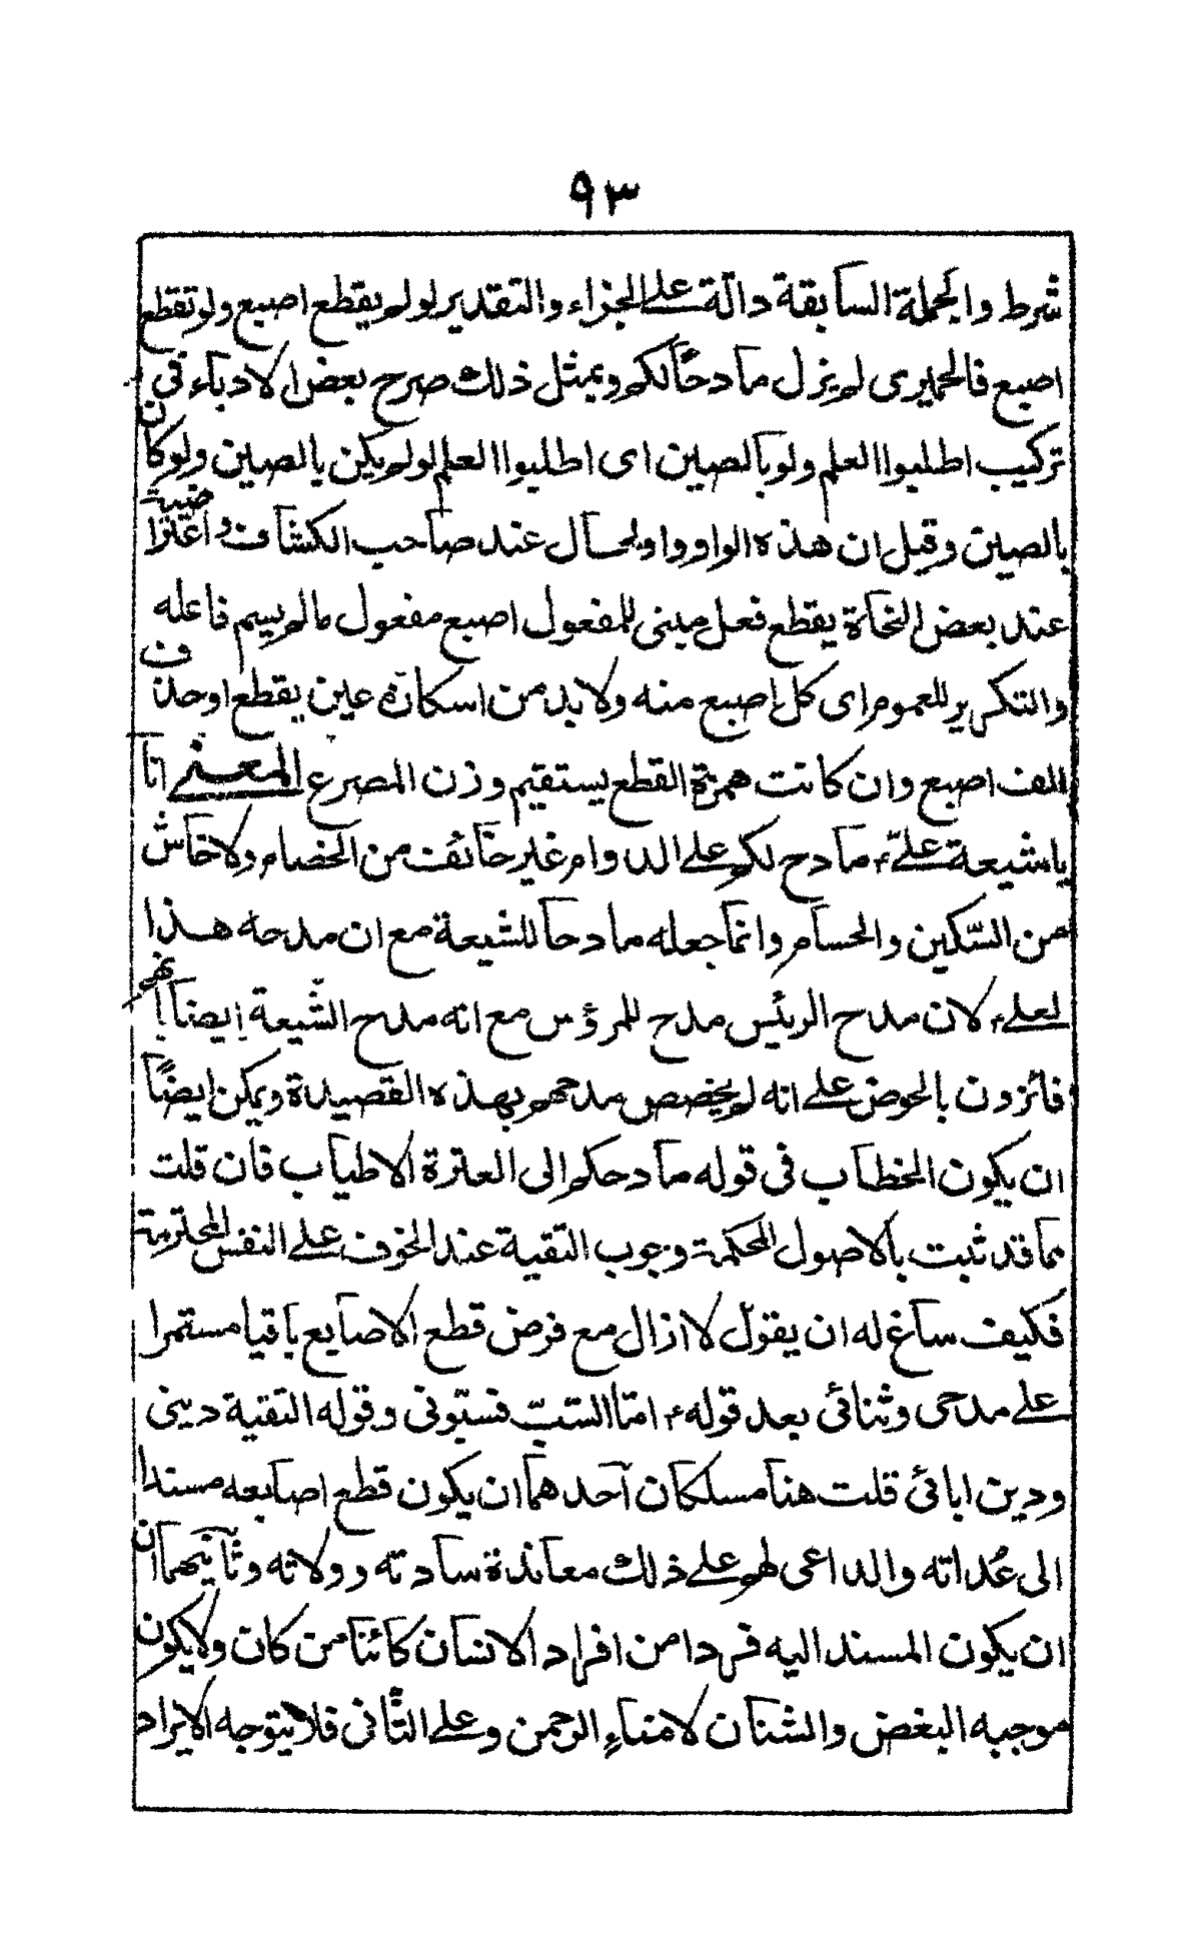 ٩٣
شرط والجملة السابقة دالّة على الجزاء والتقدير لو لم يقطع اصبع ولو تقطع
اصبع فالحميرى لم يزل مادحًا لكم وبمثل ذلك صرح بعض الادباء فى
تركيب اطلبوا العلم ولو بالصين اى اطلبوا العلم لو لم يكن بالصين ولو كان
بالصين وقيل ان هذه الواو واو لحال عند صاحب الكشاف واعتراضية
عند بعض النحاة يقطع فعل مبنى للمفعول اصبع مفعول مالم يسم فاعله
والتكرير للعموم اى كل اصبع منه ولا بد من اسكان عين يقطع او حذف
الف اصبع وان كانت همزة القطع يستقيم وزن المصرع المعنى انا
يا شيعة علىّ مادح لكم على الدوام غير خائف من الخصام ولا خاش
من السّكين والحسام وانما جعله مادحا للشيعة مع ان مدحه هذا
لعلى لان مدح الرئيس مدح للمرؤس مع انه مدح الشّيعة ايضا بانهم
فائزون بالحوض على انه لم يخصص مدحهم بهذه القصيدة ويمكن ايضًا
ان يكون الخطاب فى قوله مادحكم الى العترة الاطياب فان قلت
مما قد ثبت بالاصول المحكمة وجوب التقية عند الخوف على النفس المحترمة
فكيف ساغ له ان يقول لا ازال مع فرض قطع الاصابع باقيا مستمرا
على مدحى وثنائى بعد قوله امّا السّبّ فسبّونى وقوله التقية دينى
ودين ابائى قلت هنا مسلكان احدهما ان يكون قطع اصابعه مسندا
الى عُداته والداعى لهم على ذلك معاندة ساداته وولاته وثانيهما ان
ان يكون المسند اليه فردا من افراد الانسان كائنا من كان ولا يكون
موجبه البغض والشنان لامناءِ الرحمن وعلى الثّانى فلا يتوجه الايراد